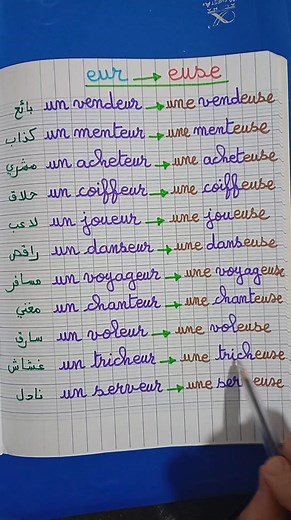 eur → euse
بائع un vendeur → une vendeuse
كذاب un menteur → une menteuse
مشتري un acheteur → une acheteuse
حلاق un coiffeur → une coiffeuse
لاعب un joueur → une joueuse
راقص un danseur → une danseuse
مسافر un voyageur → une voyageuse
مغني un chanteur → une chanteuse
سارق un voleur → une voleuse
غشاش un tricheur → une tricheuse
نادل un serveur → une ser euse